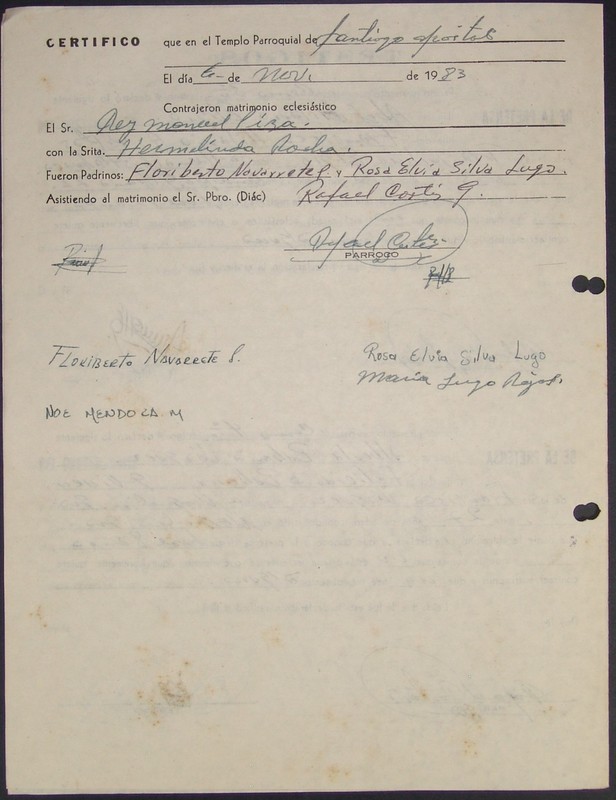 CERTIFICO que en el Templo Parroquial de Santiago apostol
El día 6 de Nov. de 1983
Contrajeron matrimonio eclesiástico
El Sr. Rey manuel Piza.
con la Srita. Hermelinda Rocha.
Fueron Padrinos: Floriberto Navarrete P. y Rosa Elvia Silva Lugo.
Asistiendo al matrimonio el Sr. Pbro. (Diác) Rafael Cortés G.
Rafael Cortés
PARROCO
FLORIBERTO NAVARRETE P.
Rosa Elvia Silva Lugo
Maria Lugo Rojas.
NOE MENDOZA M